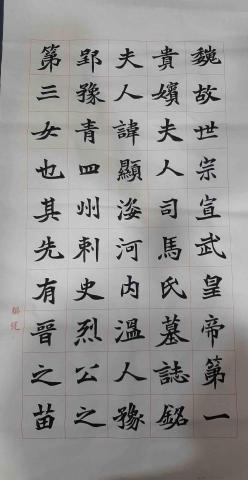 魏故世宗宣武皇帝第一
貴嬪夫人司馬氏墓誌銘
夫人諱顯姿河内溫人豫
郢豫青四州刺史烈公之
第三女也其先有晉之苗